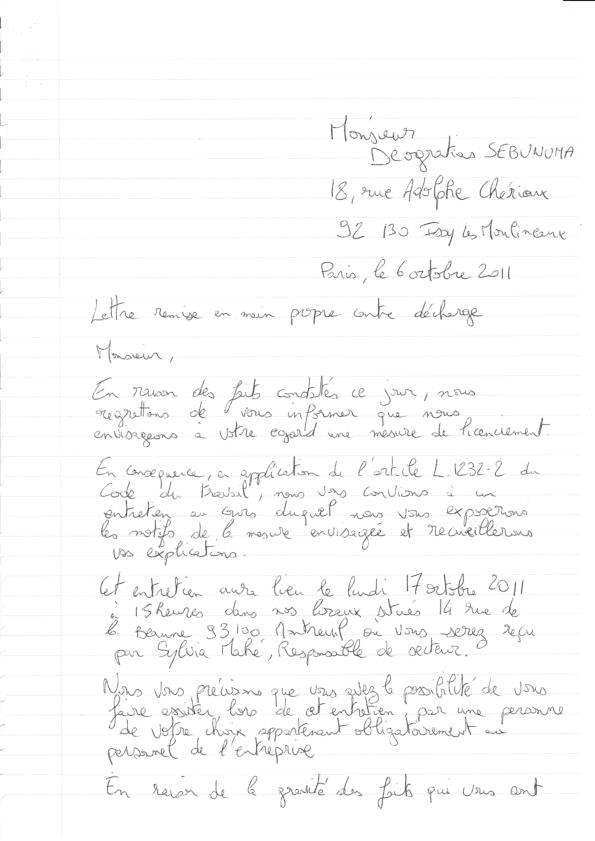 Monsieur
Deogratias SEBUNUMA
18, rue Adolphe Chérioux
92 130 Issy Les Moulineaux
Paris, le 6 octobre 2011
Lettre remise en main propre contre décharge
Monsieur,
En raison des faits constatés ce jour, nous
regrettons de vous informer que nous
envisageons à votre egard une mesure de licenciement.
En consequence, en application de l'article L.1232-2 du
Code du travail, nous vous convions à un
entretien au cours duquel nous vous exposerons
les motifs de la mesure envisagée et recueillerons
vos explications.
Cet entretien aura lieu le lundi 17 octobre 2011
à 15 heures dans nos locaux situés 14 rue de
la Beaune 93100 Montreuil où vous serez reçu
par Sylvia Mahé, Responsable de secteur.
Nous vous précisons que vous avez la possibilité de vous
faire assister lors de cet entretien, par une personne
de votre choix appartenant obligatoirement au
personnel de l'entreprise
En raison de la gravité des faits qui vous sont